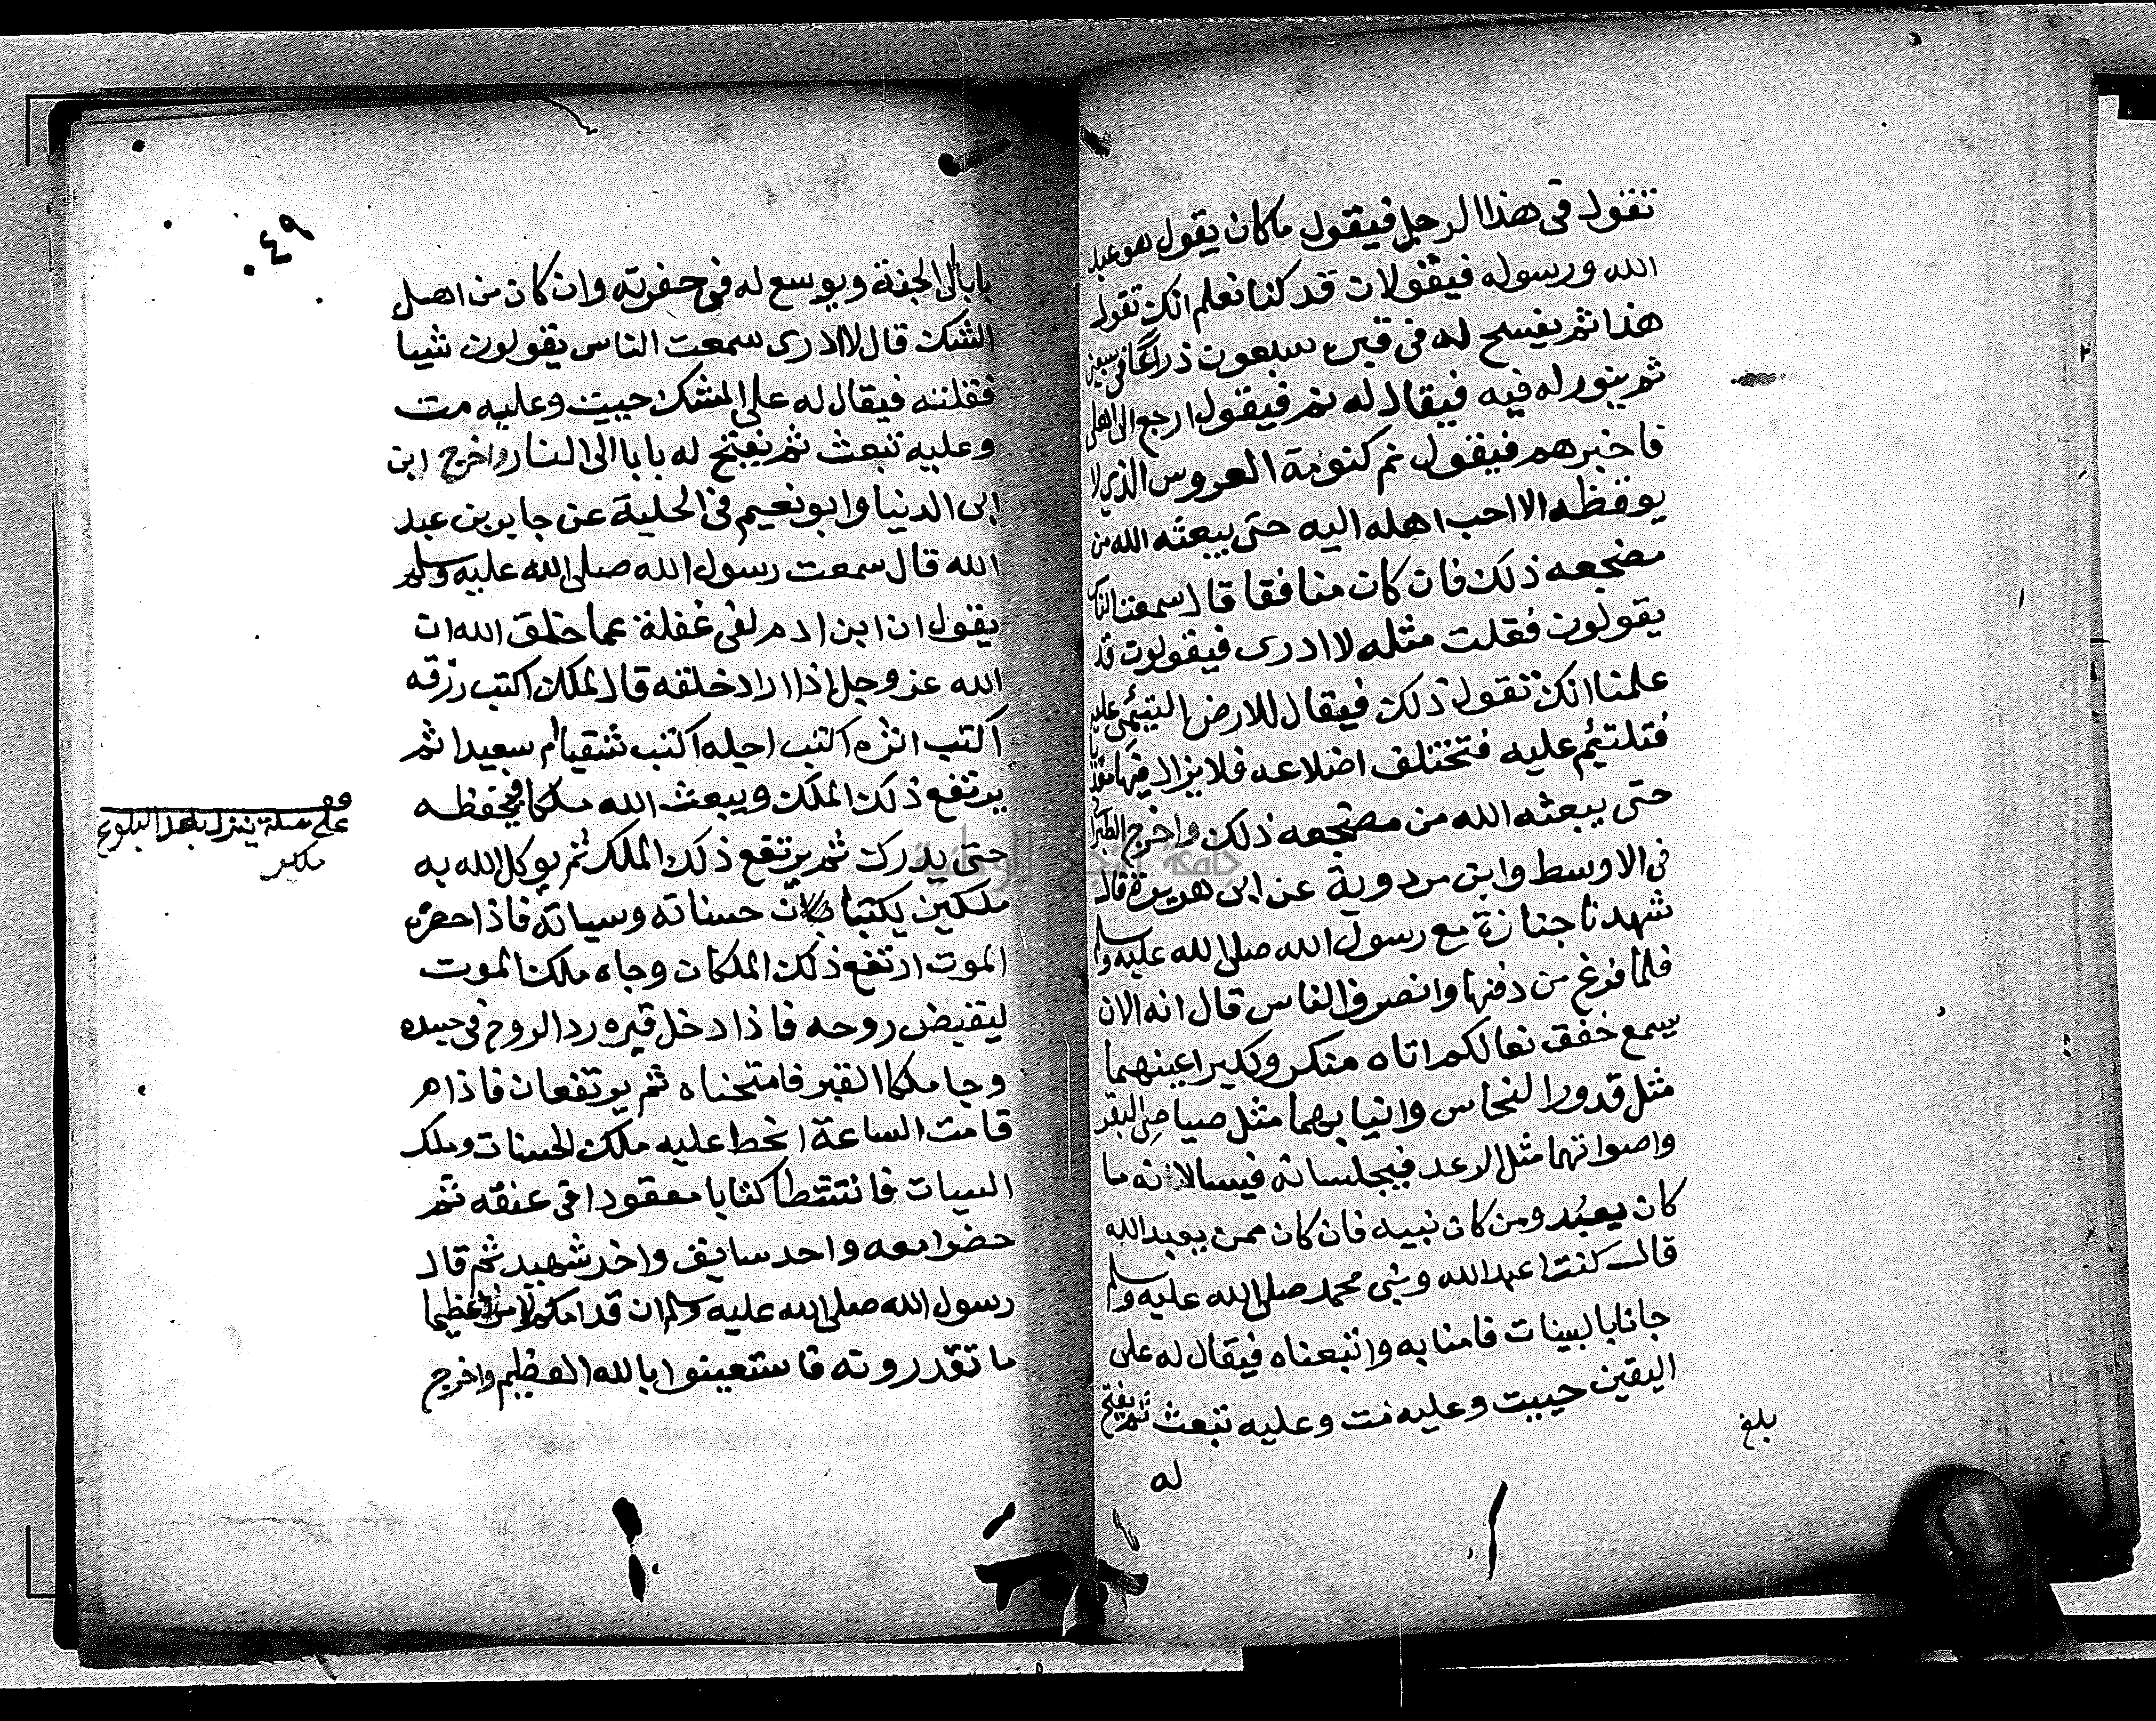 تقول فى هذا الرجل فيقول ماكان يقول هو عبد
الله ورسوله فيقولان قد كنا نعلم انك تقول
هذا ثم يفسح له فى قبره سبعون ذراعا فى سبعين
ثم ينور له فيه فيقال له نم فيقول ارجع الى اهلى
فاخبرهم فيقول نم كنومة العروس الذي لا
يوقظه الا احب اهله اليه حتى يبعثه الله من
مضجعه ذلك فان كان منافقا قال سمعت الناس
يقولون فقلت مثله لا ادرى فيقولون قد
علمنا انك تقول ذلك فيقال للارض التيئمى عليه
فتلتئم عليه فتختلف اضلاعه فلا يزال فيها معذبا
حتى يبعثه الله من مضجعه ذلك واخرج الطبرانى
فى الاوسط وابن مردوية عن ابى هريرة قال
شهدنا جنازة مع رسول الله صلى الله عليه وسلم
فلما فرغ من دفنها وانصرف الناس قال انه الان
يسمع خفق نعالكم اتاه منكر ونكير اعينهما
مثل قدور النحاس وانيابهما مثل صياصى البقر
واصواتهما مثل الرعد فيجلسانه فيسالانه ما
كان يعبد ومن كان نبيه فان كان ممن يعبد الله
قال كنت اعبد الله ونبى محمد صلى الله عليه وسلم
جانا بالبينات فامنا به واتبعناه فيقال له على
اليقين حييت وعليه مت وعليه تبعث ثم يفتح
له
بلغ
٤٩
بابا الى الجنة ويوسع له فى حفرته وان كان من اهل
الشك قال لا ادرى سمعت الناس يقولون شيا
فقلته فيقال له على الشك حييت وعليه مت
وعليه تبعث ثم يفتح له بابا الى النار واخرج ابن
ابى الدنيا وابو نعيم فى الحلية عن جابر بن عبد
الله قال سمعت رسول الله صلى الله عليه وسلم
يقول ان ابن ادم لفى غفلة عما خلق الله ان
الله عز وجل اذا اراد خلقه قال للملك اكتب رزقه
اكتب اثره اكتب اجله اكتب شقيا ام سعيدا ثم
يرتفع ذلك الملك ويبعث الله ملكا فيحفظه
حتى يدرك ثم يرتفع ذلك الملك ثم يوكل الله به
ملكين يكتبان حسناته وسياته فاذا حضره
الموت ارتفع ذلك الملكان وجاه ملك الموت
ليقبض روحه فاذا دخل قبره رد الروح فى جسده
وجا ملكا القبر فامتحناه ثم يرتفعان فاذا
قامت الساعة انحط عليه ملك الحسنات وملك
السيات فانتشطا كتابا معقودا فى عنقه ثم
حضرا معه واحد سايق واخر شهيد ثم قال
رسول الله صلى الله عليه وسلم ان قدامكم لامرا عظيما
ما تقدرونه فاستعينوا بالله العظيم واخرج